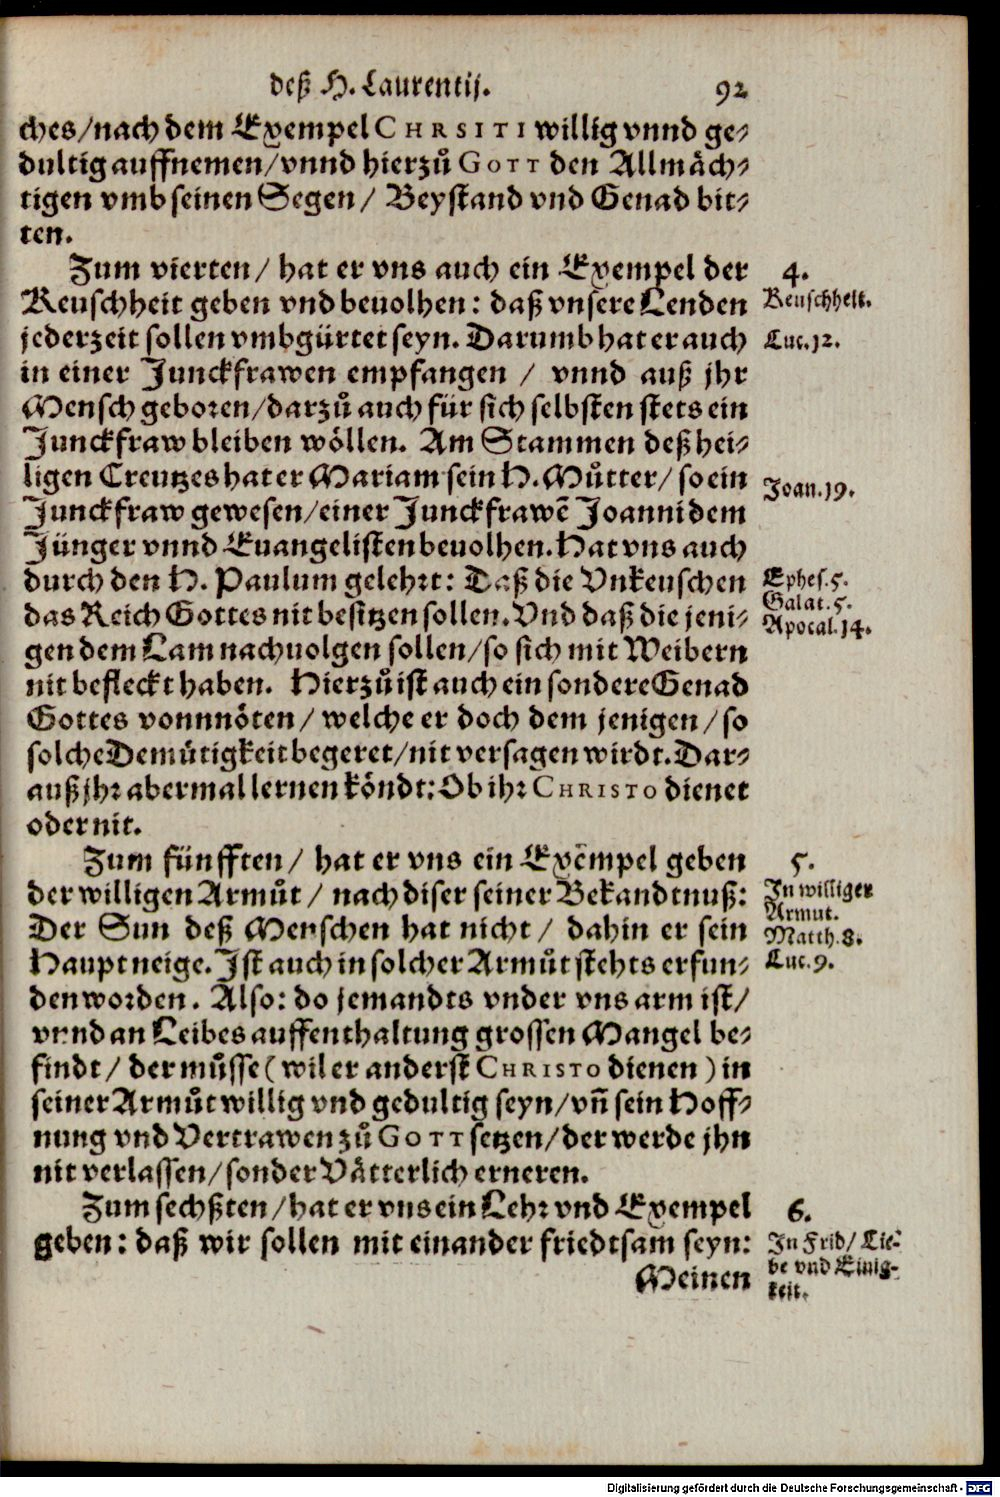 deß H. Laurentij. 92
ches/nach dem Exempel CHRSITI willig vnnd ge⸗
dultig auffnemen/vnnd hierzů GOTT den Allmäch⸗
tigen vmb seinen Segen/ Beystand vnd Genad bit⸗
ten.
Zum vierten/ hat er vns auch ein Exempel der
Keuschheit geben vnd beuolhen: daß vnsere Lenden
jederzeit sollen vmbgürtet seyn. Darumb hat er auch
in einer Junckfrawen empfangen / vnnd auß jhr
Mensch geboren/darzů auch für sich selbsten stets ein
Junckfraw bleiben wöllen. Am Stammen deß hei⸗
ligen Creutzes hat er Mariam sein H. Můtter/ so ein
Junckfraw gewesen/einer Junckfrawẽ Joanni dem
Jünger vnnd Euangelisten beuolhen. Hat vns auch
durch den H. Paulum gelehrt: Daß die Vnkeuschen
das Reich Gottes nit besitzen sollen. Vnd daß die jeni⸗
gen dem Lam nachuolgen sollen/so sich mit Weibern
nit befleckt haben. Hierzů ist auch ein sondere Genad
Gottes vonnnöten/ welche er doch dem jenigen/so
solche Demütigkeit begeret/nit versagen wirdt. Dar⸗
auß jhr abermal lernen köndt: Ob ihr CHRISTO dienet
oder nit.
Zum fünfften/ hat er vns ein Exẽmpel geben
der willigen Armůt / nach diser seiner Bekandtnuß:
Der Sun deß Menschen hat nicht/ dahin er sein
Haupt neige. Ist auch in solcher Armůt stehts erfun⸗
den worden. Also: do jemandts vnder vns arm ist/
vnnd an Leibes auffenthaltung grossen Mangel be⸗
findt/ der můsse (wil er anderst CHRISTO dienen) in
seiner Armůt willig vnd gedultig seyn/vñ sein Hoff⸗
nung vnd Vertrawen zů GOTT setzen/der werde jhn
nit verlassen/sonder Vätterlich erneren.
Zum sechßten/hat er vns ein Lehr vnd Exempel
geben: daß wir sollen mit einander friedtsam seyn:
Meinen
4.
Keuschheit.
Luc. 12.
Joan. 19.
Ephes. 5.
Galat. 5.
Apocal. 14.
5.
In williger
Armut.
Matth. 8.
Luc. 9.
6.
In Frid/ Lie⸗
be vnd Einig⸗
keit.
Digitalisierung gefördert durch die Deutsche Forschungsgemeinschaft - DFG